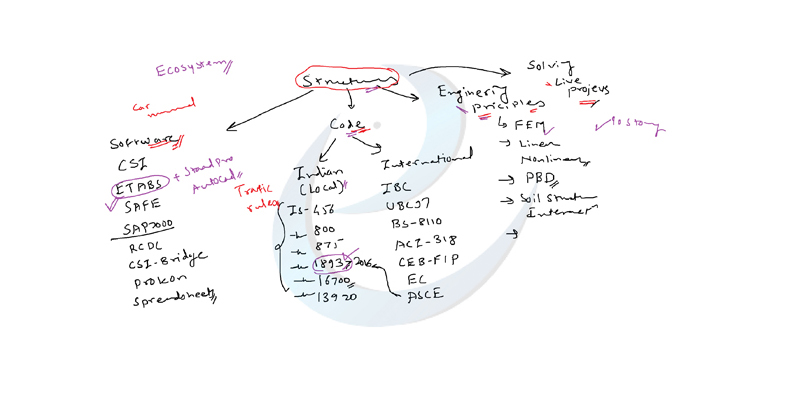 Ecosystem
Structures
Solving
Live
Projects
Car
manual
Enginering
Priciples
Code
FEM
10 story
Software
Linear
Nonlinear
CSI
Indian
(Local)
International
ETABS + Staad pro
AutoCad
PBD
SAFE
Trafic
rules
IS-456
IBC
Soil Structure
SAP2000
800
UBC97
RCDC
875
BS-8110
CSI-Bridge
1893:2016
ACI-318
Prokon
16700
CEB-FIP
Spreadsheets
13920
EC
ASCE